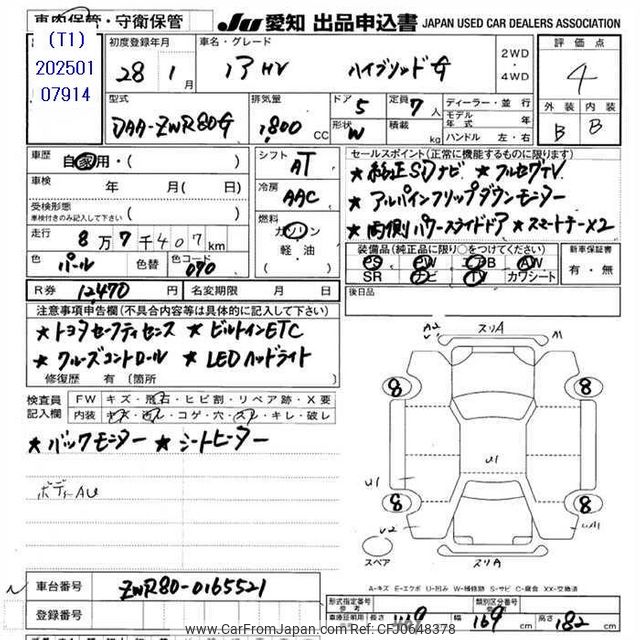 車内保管・守衛保管
JU 愛知 出品申込書 JAPAN USED CAR DEALERS ASSOCIATION
(T1)
202501
07914
初度登録年月
28年1月
車名・グレード
ハイブリッド G
2WD
・
4WD
評価点
4
型式
DAA-ZWR80G
排気量
1,800 CC
ドア 5
形状 W
定員 7人
積載 kg
ディーラー・並行
モデル年式 年
ハンドル 左・右
外装 内装
B B
車歴
自家用・( )
シフト
AT
車検
年 月( 日)
冷房
AAC
受検形態
車検付きのみ記入して下さい
( )
走行
8万7千407km
燃料
ガソリン
軽・油
( )
色
パール
色替
色コード
070
セールスポイント(正常に機能するものに限ります)
★純正SDナビ ★フルセグTV
★アルパインフリップダウンモニター
★両側パワースライドドア ★スマートキー×2
装備品(純正品に限り○をつけてください)
PS PW AB AW
SR ナビ TV カワシート
新車保証書
有・無
R券 12,470円
名変期限 月 日
後日品
注意事項申告欄(不具合内容等は具体的に記入して下さい)
★トヨタセーフティセンス ★ビルトインETC
★クルーズコントロール ★LEDヘッドライト
修復歴 有〔箇所 〕
検査員記入欄
FW キズ・飛石・ヒビ割・リペア跡・X要
内装 キズ・汚レ・コゲ・穴・スレ・キレ・破レ
★バックモニター ★シートヒーター
ボディAU
A2
スリA
8
8
U1
U1
8
8
V2
スペア
スリA
A-キズ E-エクボ U-凹み W-補修跡 S-サビ C-腐食 XX-交換済
車台番号 ZWR80-0165521
登録番号
形式指定番号
類別区分番号
参考
車庫証明用
長さ cm
幅 169 cm
高さ 182 cm
www.CarFromJapan.com Ref: CFJ0648378